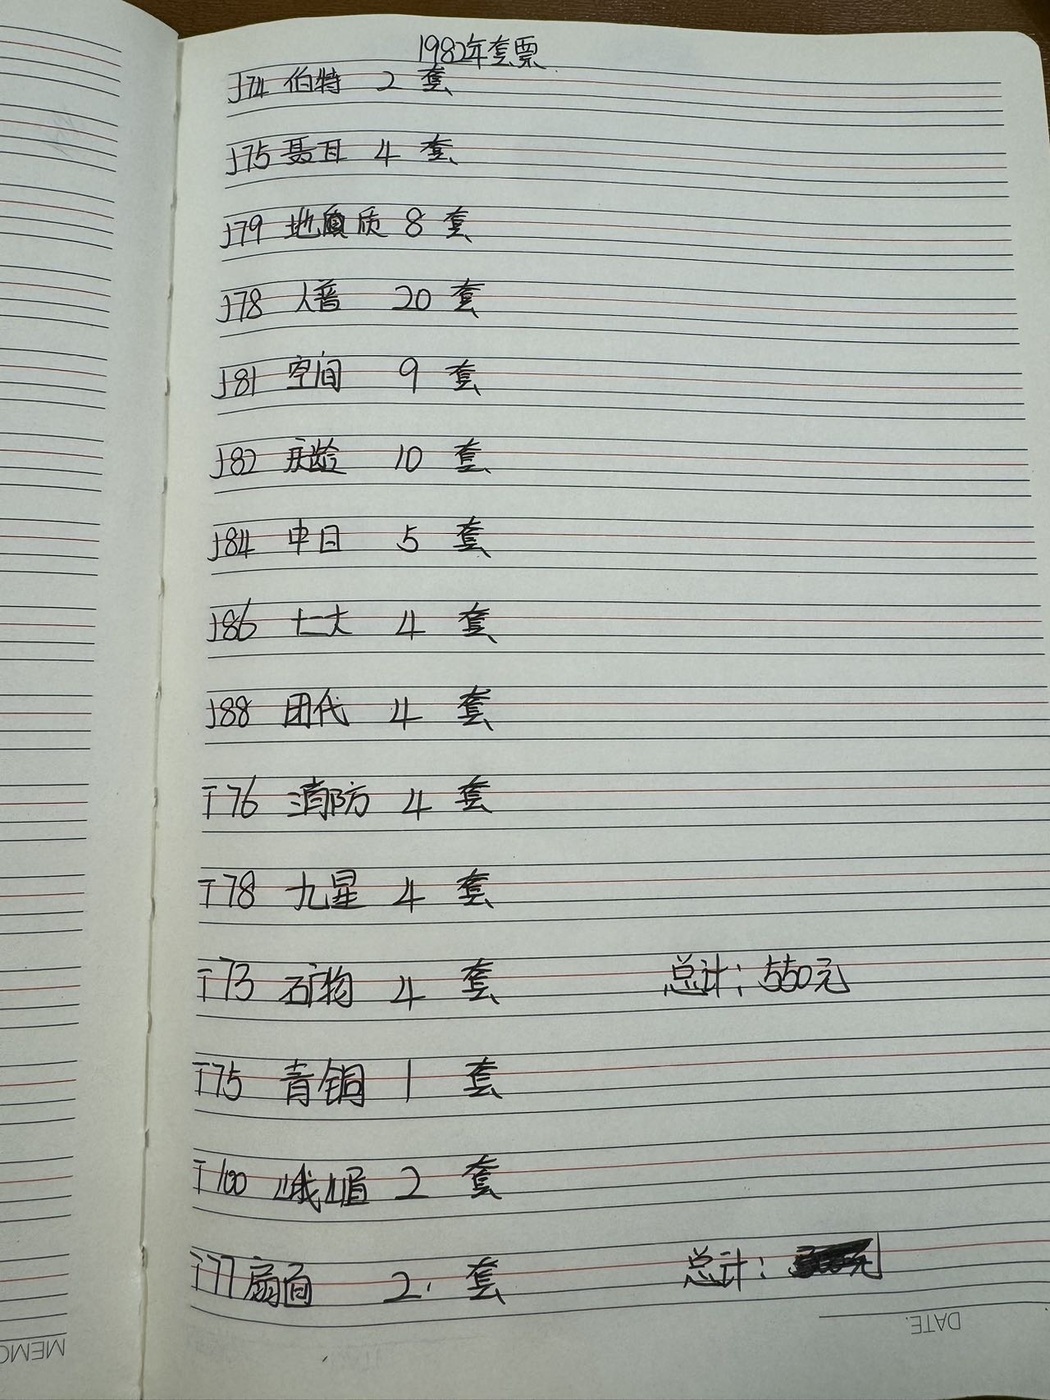 1982年套票
J74 伯特 2 套
J75 聂耳 4 套
J79 地质 8 套
J78 人普 20 套
J81 空间 9 套
J82 庆龄 10 套
J84 中日 5 套
J86 十大 4 套
J88 团代 4 套
T76 消防 4 套
T78 九星 4 套
T73 矿物 4 套 总计：550元
T75 青铜 1 套
T100 峨嵋 2 套
T77 扇面 2 套 总计：
DATE.
MEMO